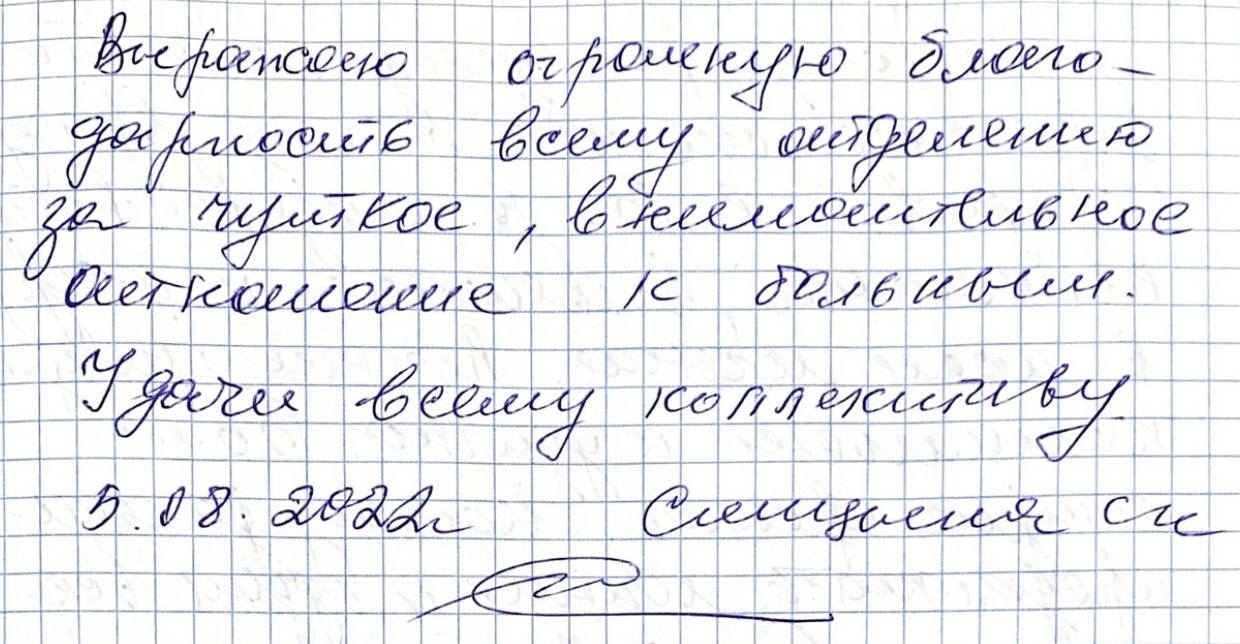 Выражаю огромную благо-
дарность всему отделению
за чуткое, внимательное
отношение к больным.
Удачи всему коллективу
5.08.2022г